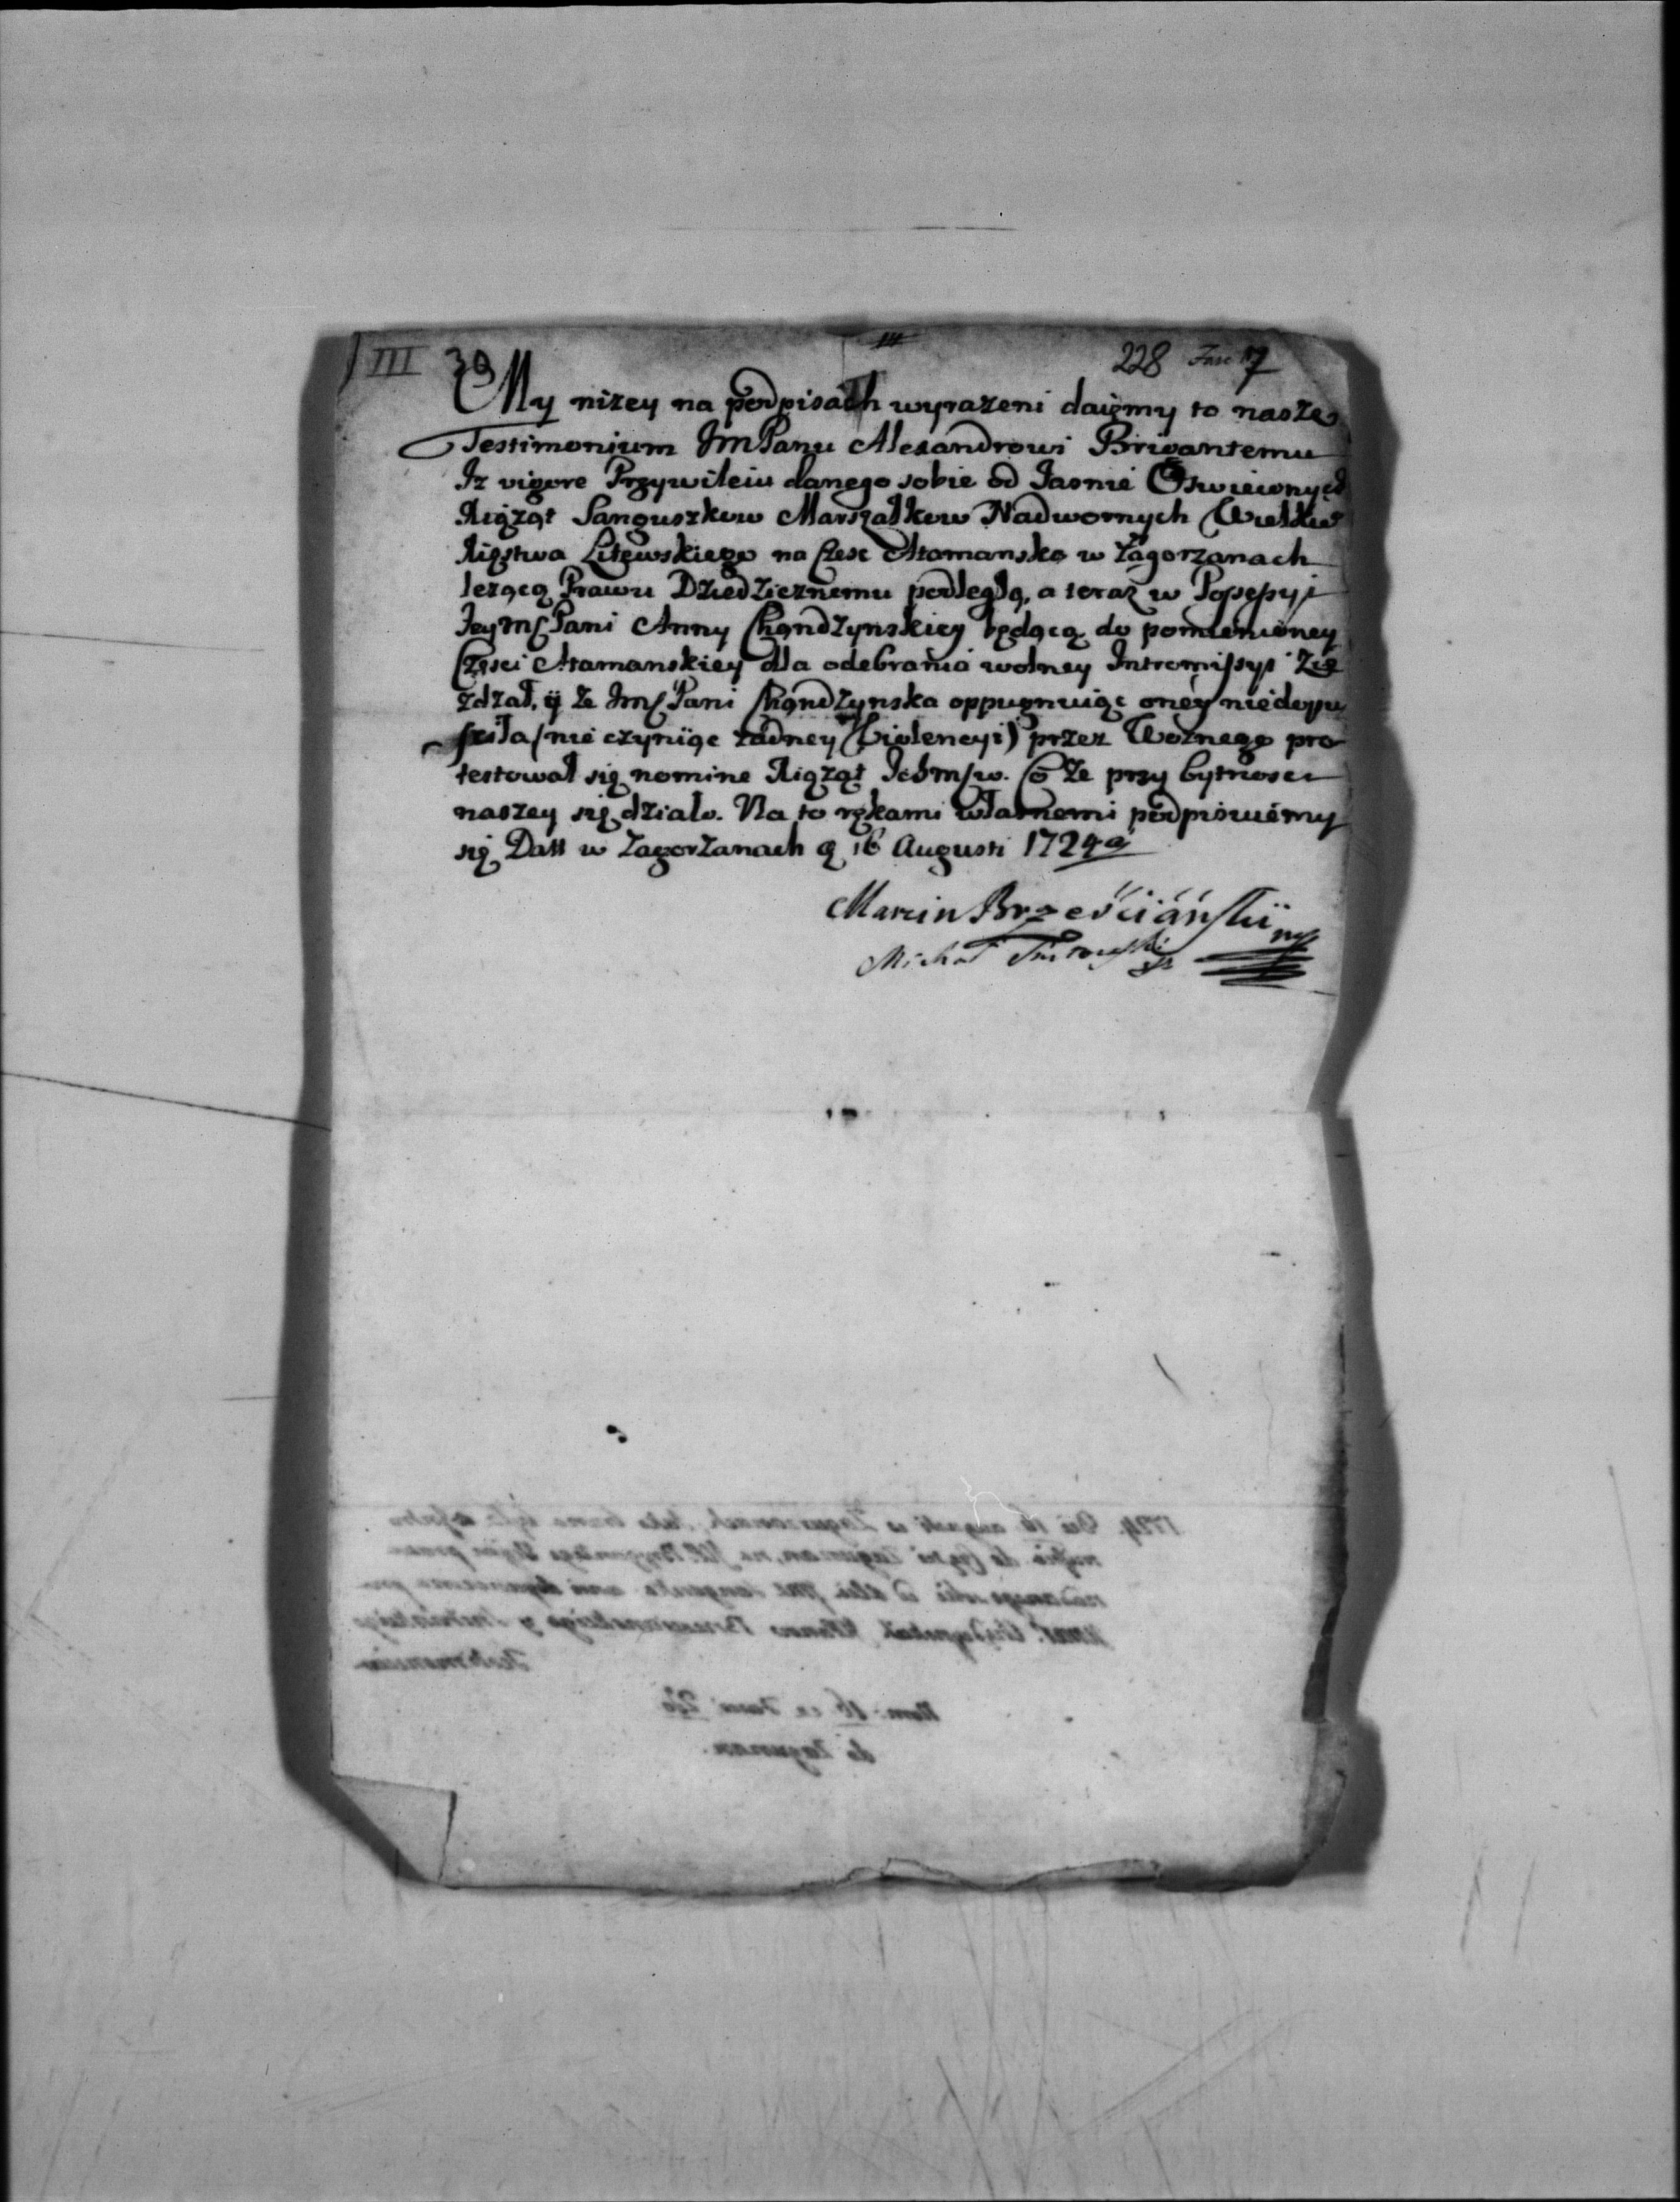 III 39 228 Fasc 17
My nizey na podpisach wyrazeni daięmy to nasze
Testimonium ImPanu Alexandrowi Brigantemu
Iz vigore Przywileiu danego sobie od Jasnie Oswieconych
Xiążąt Sanguszkow Marszałkow Nadwornych Wielkie°
Xięstwa Litewskiego na Częsc Atamanską w Zagorzanach
lezącą Prawu Dziedzicznemu podległą, a teraz w Possessyi
Jeymſ Pani Anny Chąndzynskiey będącą do pomienioney
Części Atamanskiey dla odebrania wolney Intromissyi Zie
zdzał, ÿ ze Jmſ Pani Chąndzynska oppugnuiąc oney niedopu
sciła (nie czyniąc zadney Violencyi) przez Woznego pro
testował się nomine Xiążąt Ichmſw. Co ze przy bytnosci
naszey się działo. Na to rękami własnemi podpisuiemy
się Datt w Zagorzanach d 16 Augusti 1724 a
Marcin Brześciański mp
Michał
1724. Die 16 augusti w Zagorzanach
do Części na
od Xcia Jmci Sanguszka
Brzescianskiego y
Testimonium
Num: 16 ex Fasci 2do
do